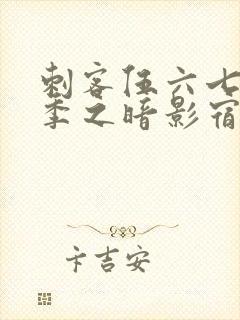 刺客伍六七
季之暗影宿
卞吉安